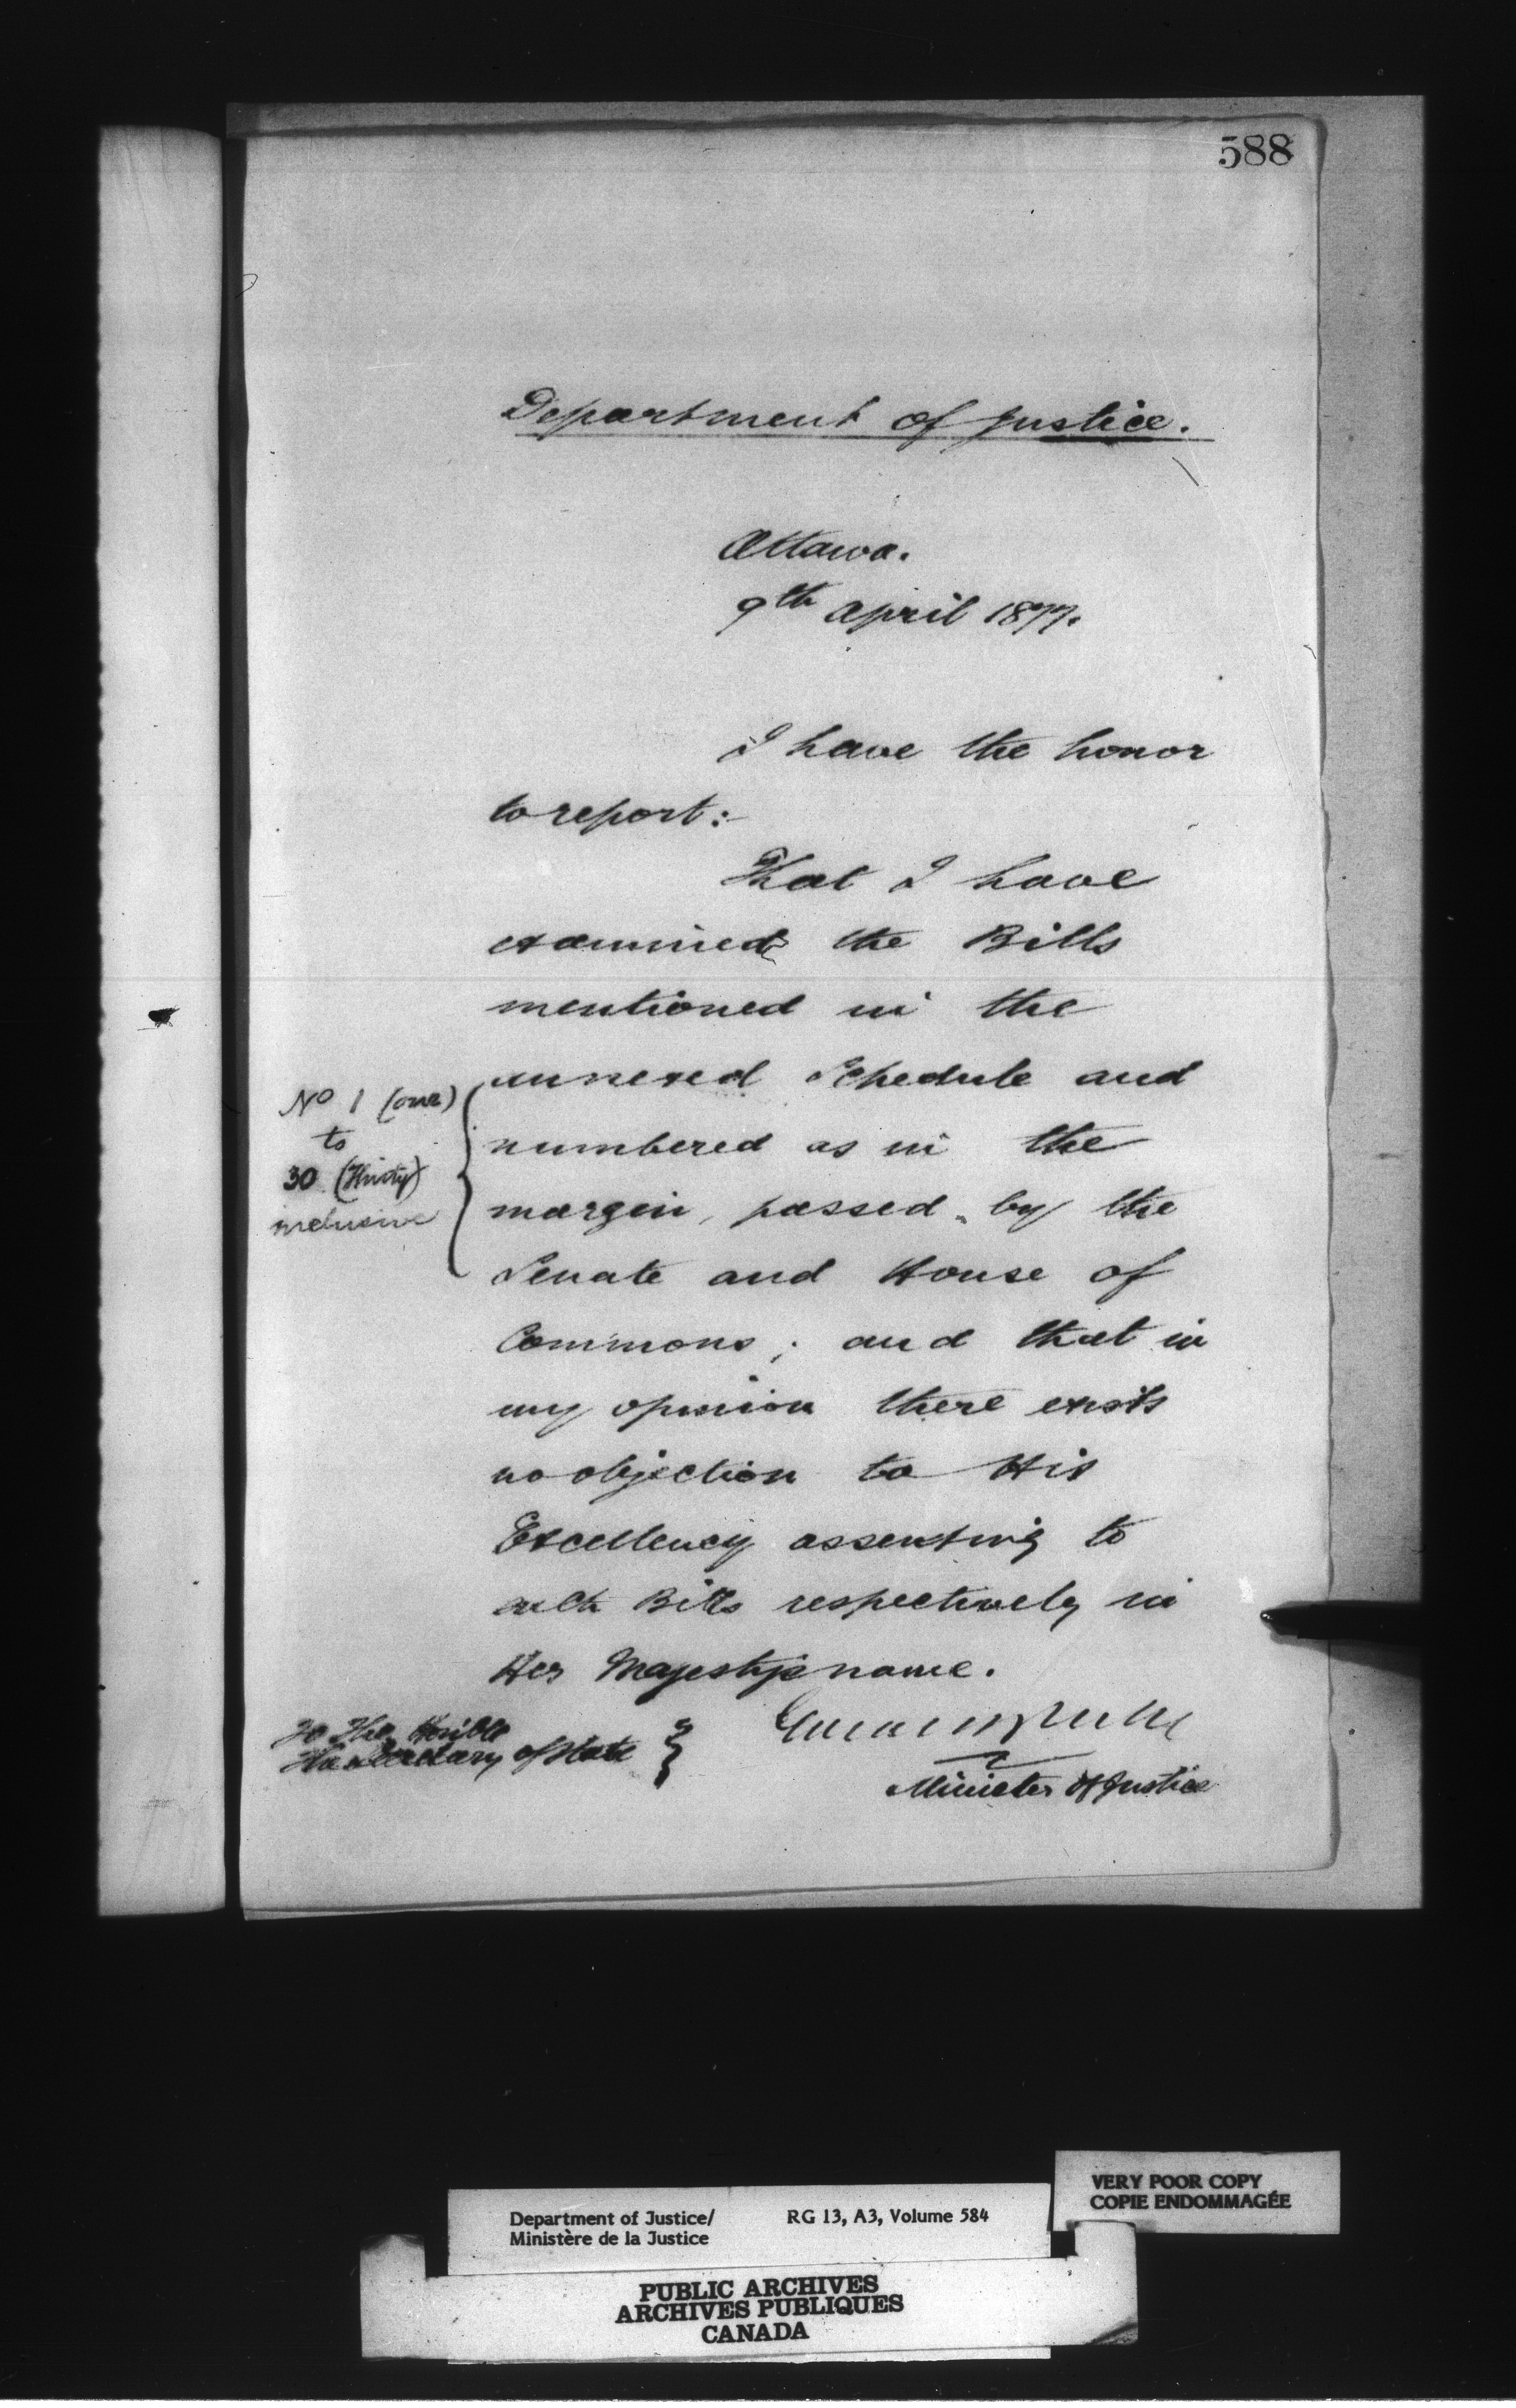 588
Department of Justice.
Ottawa.
9th April 1877.
I have the honor
to report:
That I have
examined the Bills
mentioned in the
annexed Schedule and
No 1 (one)
to
30 (Thirty)
inclusive
numbered as in the
margin, passed by the
Senate and House of
Commons; and that in
my opinion there exists
no objection to His
Excellency assenting to
such Bills respectively in
Her Majesty's name.
To The Honble
The Secretary of State
Minister of Justice
VERY POOR COPY
COPIE ENDOMMAGÉE
Department of Justice/
Ministère de la Justice
RG 13, A3, Volume 584
PUBLIC ARCHIVES
ARCHIVES PUBLIQUES
CANADA